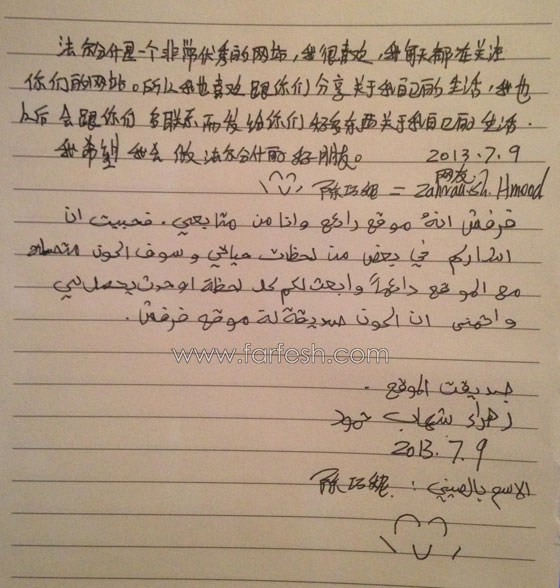 法尔分什是一个非常优秀的网站，我很喜欢，我每天都在关注
你们的网站。所以我也喜欢跟你们分享关于我自己的生活，我也
以后会跟你们多联系而发给你们好多东西关于我自己的生活.
我希望我会做法尔分什的好朋友。 2013.7.9
网友:
陈巧妮 = Zahraa.sh.Hmood
فرفش انهُ موقع رائع وانا من متابعي. فحبيت ان
اشارككم في بعض من لحظات حياتي و سوف اكون متصله
مع الموقع دائماً وابعث لكم كل لحظة او حدث يحصل لي
واتمنى ان اكون صديقة لموقع فرفش.
www.farfesh.com
صديقت الموقع.
زهراء شهاب حمود
2013.7.9
الاسم بالصيني: 陈巧妮